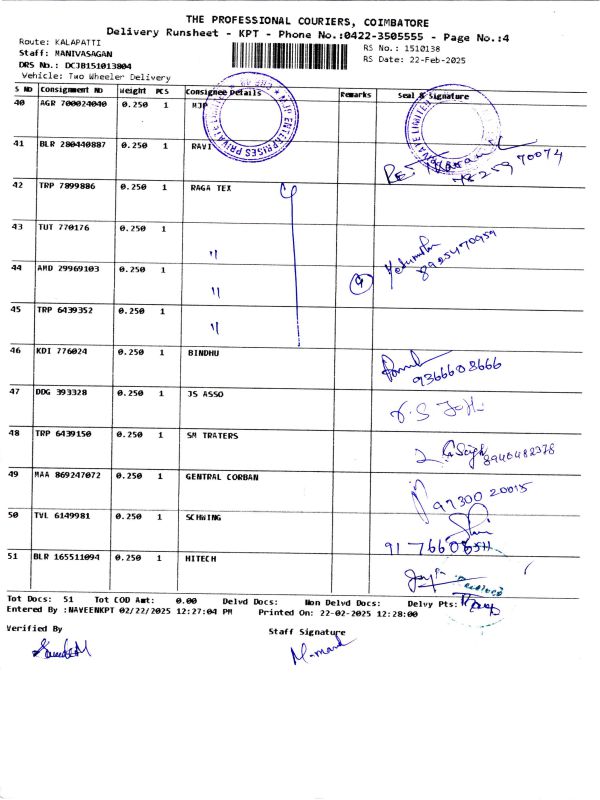 THE PROFESSIONAL COURIERS, COIMBATORE
Delivery Runsheet - KPT - Phone No.:0422-3505555 - Page No.:4
Route: KALAPATTI
RS No.: 1510138
Staff: MANIVASAGAN
RS Date: 22-Feb-2025
DRS No.: DCJB151013804
Vehicle: Two Wheeler Delivery
S NO Consignment NO Weight PCS Consignee Details Remarks Seal & Signature
40 AGR 700024040 0.250 1 MJP
MJP ENTERPRISES PRIVATE LIMITED
41 BLR 280440887 0.250 1 RAVI
42 TRP 7899886 0.250 1 RAGA TEX
43 TUT 770176 0.250 1 "
8925470959
44 AMD 29969103 0.250 1 " 4
45 TRP 6439352 0.250 1 "
46 KDI 776024 0.250 1 BINDHU
9366608666
47 DDG 393328 0.250 1 JS ASSO
48 TRP 6439150 0.250 1 SM TRATERS
8940482378
49 MAA 869247072 0.250 1 GENTRAL CORBAN
97300 20015
50 TVL 6149981 0.250 1 SCHWING
51 BLR 165511094 0.250 1 HITECH
Tot Docs: 51 Tot COD Amt: 0.00 Delvd Docs: Non Delvd Docs: Delvy Pts:
Entered By :NAVEENKPT 02/22/2025 12:27:04 PM Printed On: 22-02-2025 12:28:00
Verified By
Staff Signature